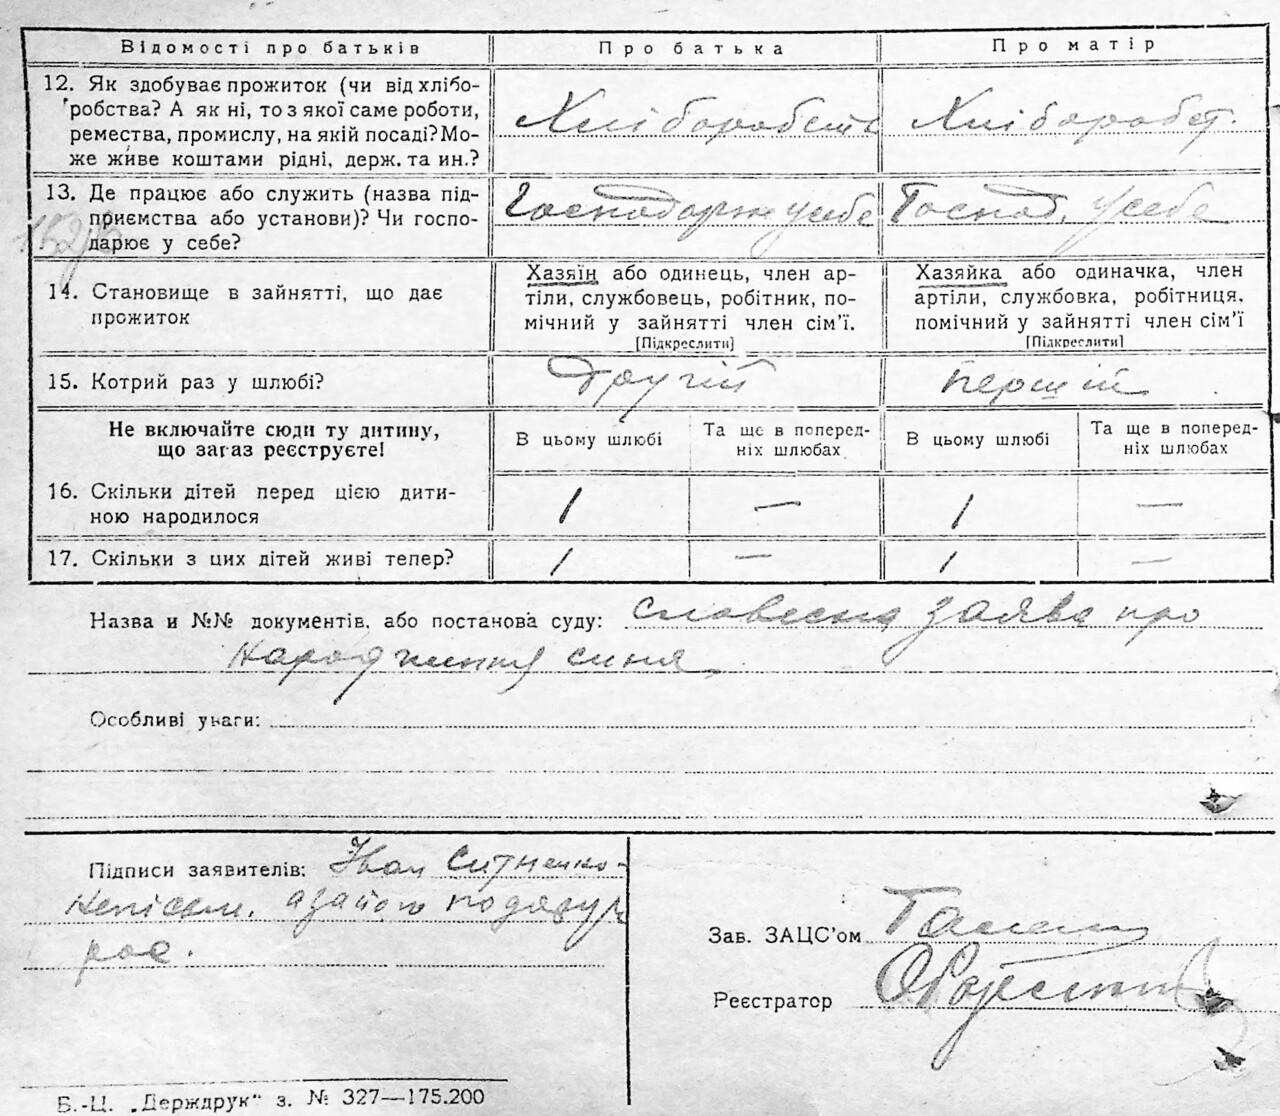 Відомості про батьків
Про батька
Про матір
12. Як здобуває прожиток (чи від хлібо-
робства? А як ні, то з якої саме роботи,
ремества, промислу, на якій посаді? Мо-
же живе коштами рідні, держ. та ин.?
Хліборобств
Хліборобст.
13. Де працює або служить (назва під-
приємства або установи)? Чи госпо-
дарює у себе?
Господарює у себе
Господ. у себе
14. Становище в зайнятті, що дає
прожиток
Хазяїн або одинець, член ар-
тіли, службовець, робітник, по-
мічний у зайнятті член сім’ї.
[Підкреслити]
Хазяйка або одиначка, член
артіли, службовка, робітниця,
помічний у зайнятті член сім’ї
[Підкреслити]
15. Котрий раз у шлюбі?
другій
першій
Не включайте сюди ту дитину,
що зараз реєструєте!
В цьому шлюбі
Та ще в поперед-
ніх шлюбах
В цьому шлюбі
Та ще в поперед-
ніх шлюбах
16. Скільки дітей перед цією дити-
ною народилося
1 — 1 —
17. Скільки з цих дітей живі тепер?
1 — 1 —
Назва и №№ документів, або постанова суду: словесна заява про
народження сина
Особливі уваги:
Підписи заявителів: Іван Ситненко-
неписьм. а за його
Зав. ЗАЦС’ом
Реєстратор
Б.-Ц. „Держдрук“ з. № 327—175.200